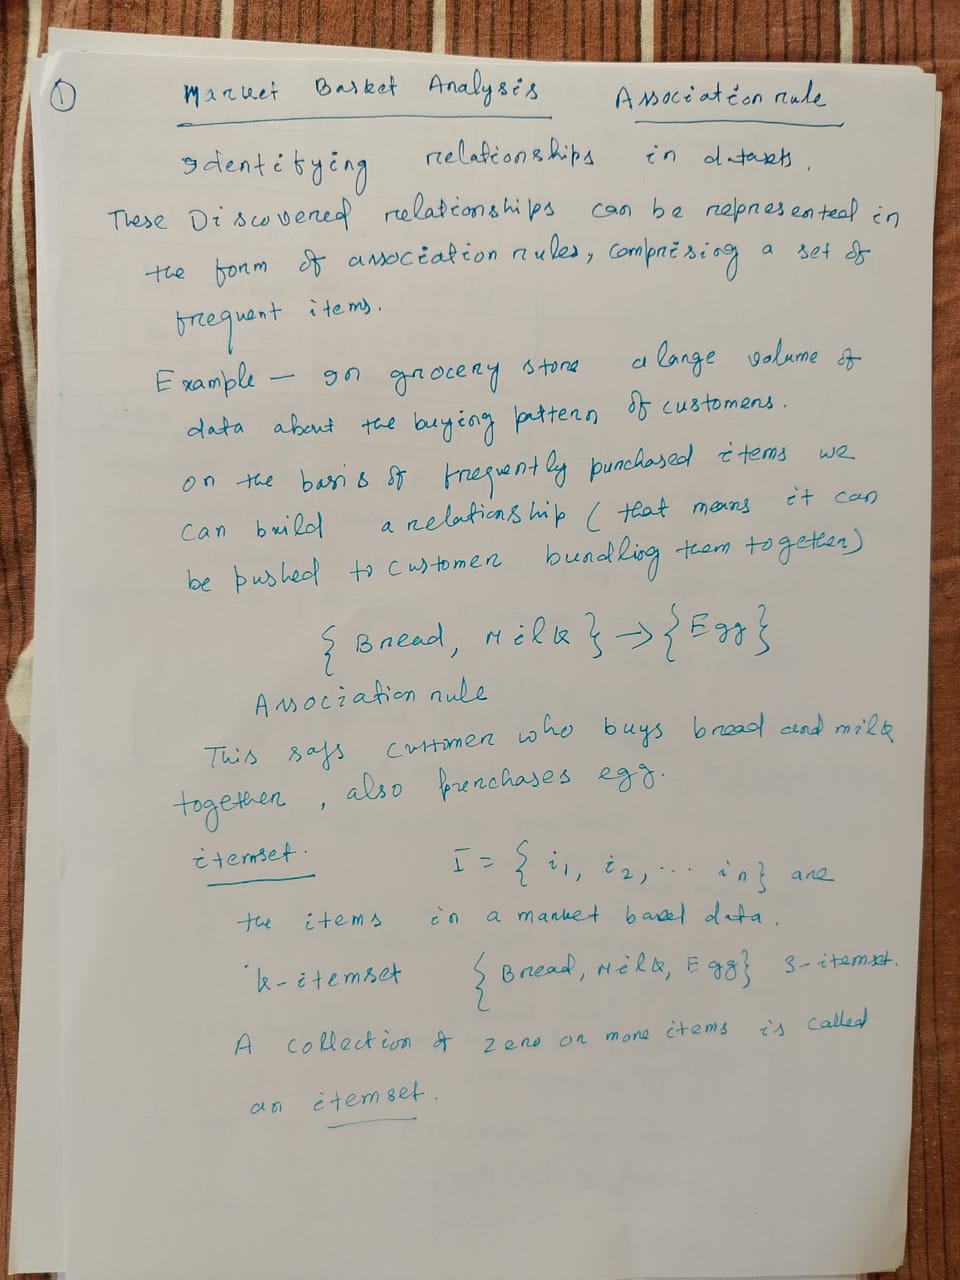 ① Market Basket Analysis Association rule
Identifying relationships in datasets.
These Discovered relationships can be represented in
the form of association rules, comprising a set of
frequent items.
Example — In grocery store a large volume of
data about the buying pattern of customers.
on the basis of frequently purchased items we
can build a relationship ( that means it can
be pushed to customer bundling them together)
{ Bread, Milk } → { Egg }
Association rule
This says customer who buys bread and milk
together, also purchases egg.
itemset. I = { i₁, i₂, ... in } are
the items in a market basel data.
k-itemset { Bread, Milk, Egg } 3-itemset.
A collection of zero or more items is called
an itemset.